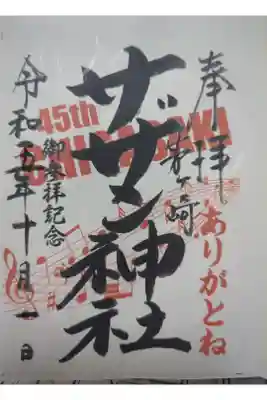 奉拝
ありがとね
茅ヶ崎
サザン神社
45th
CHIGASAKI
御参拝記念
令和五年十月一日